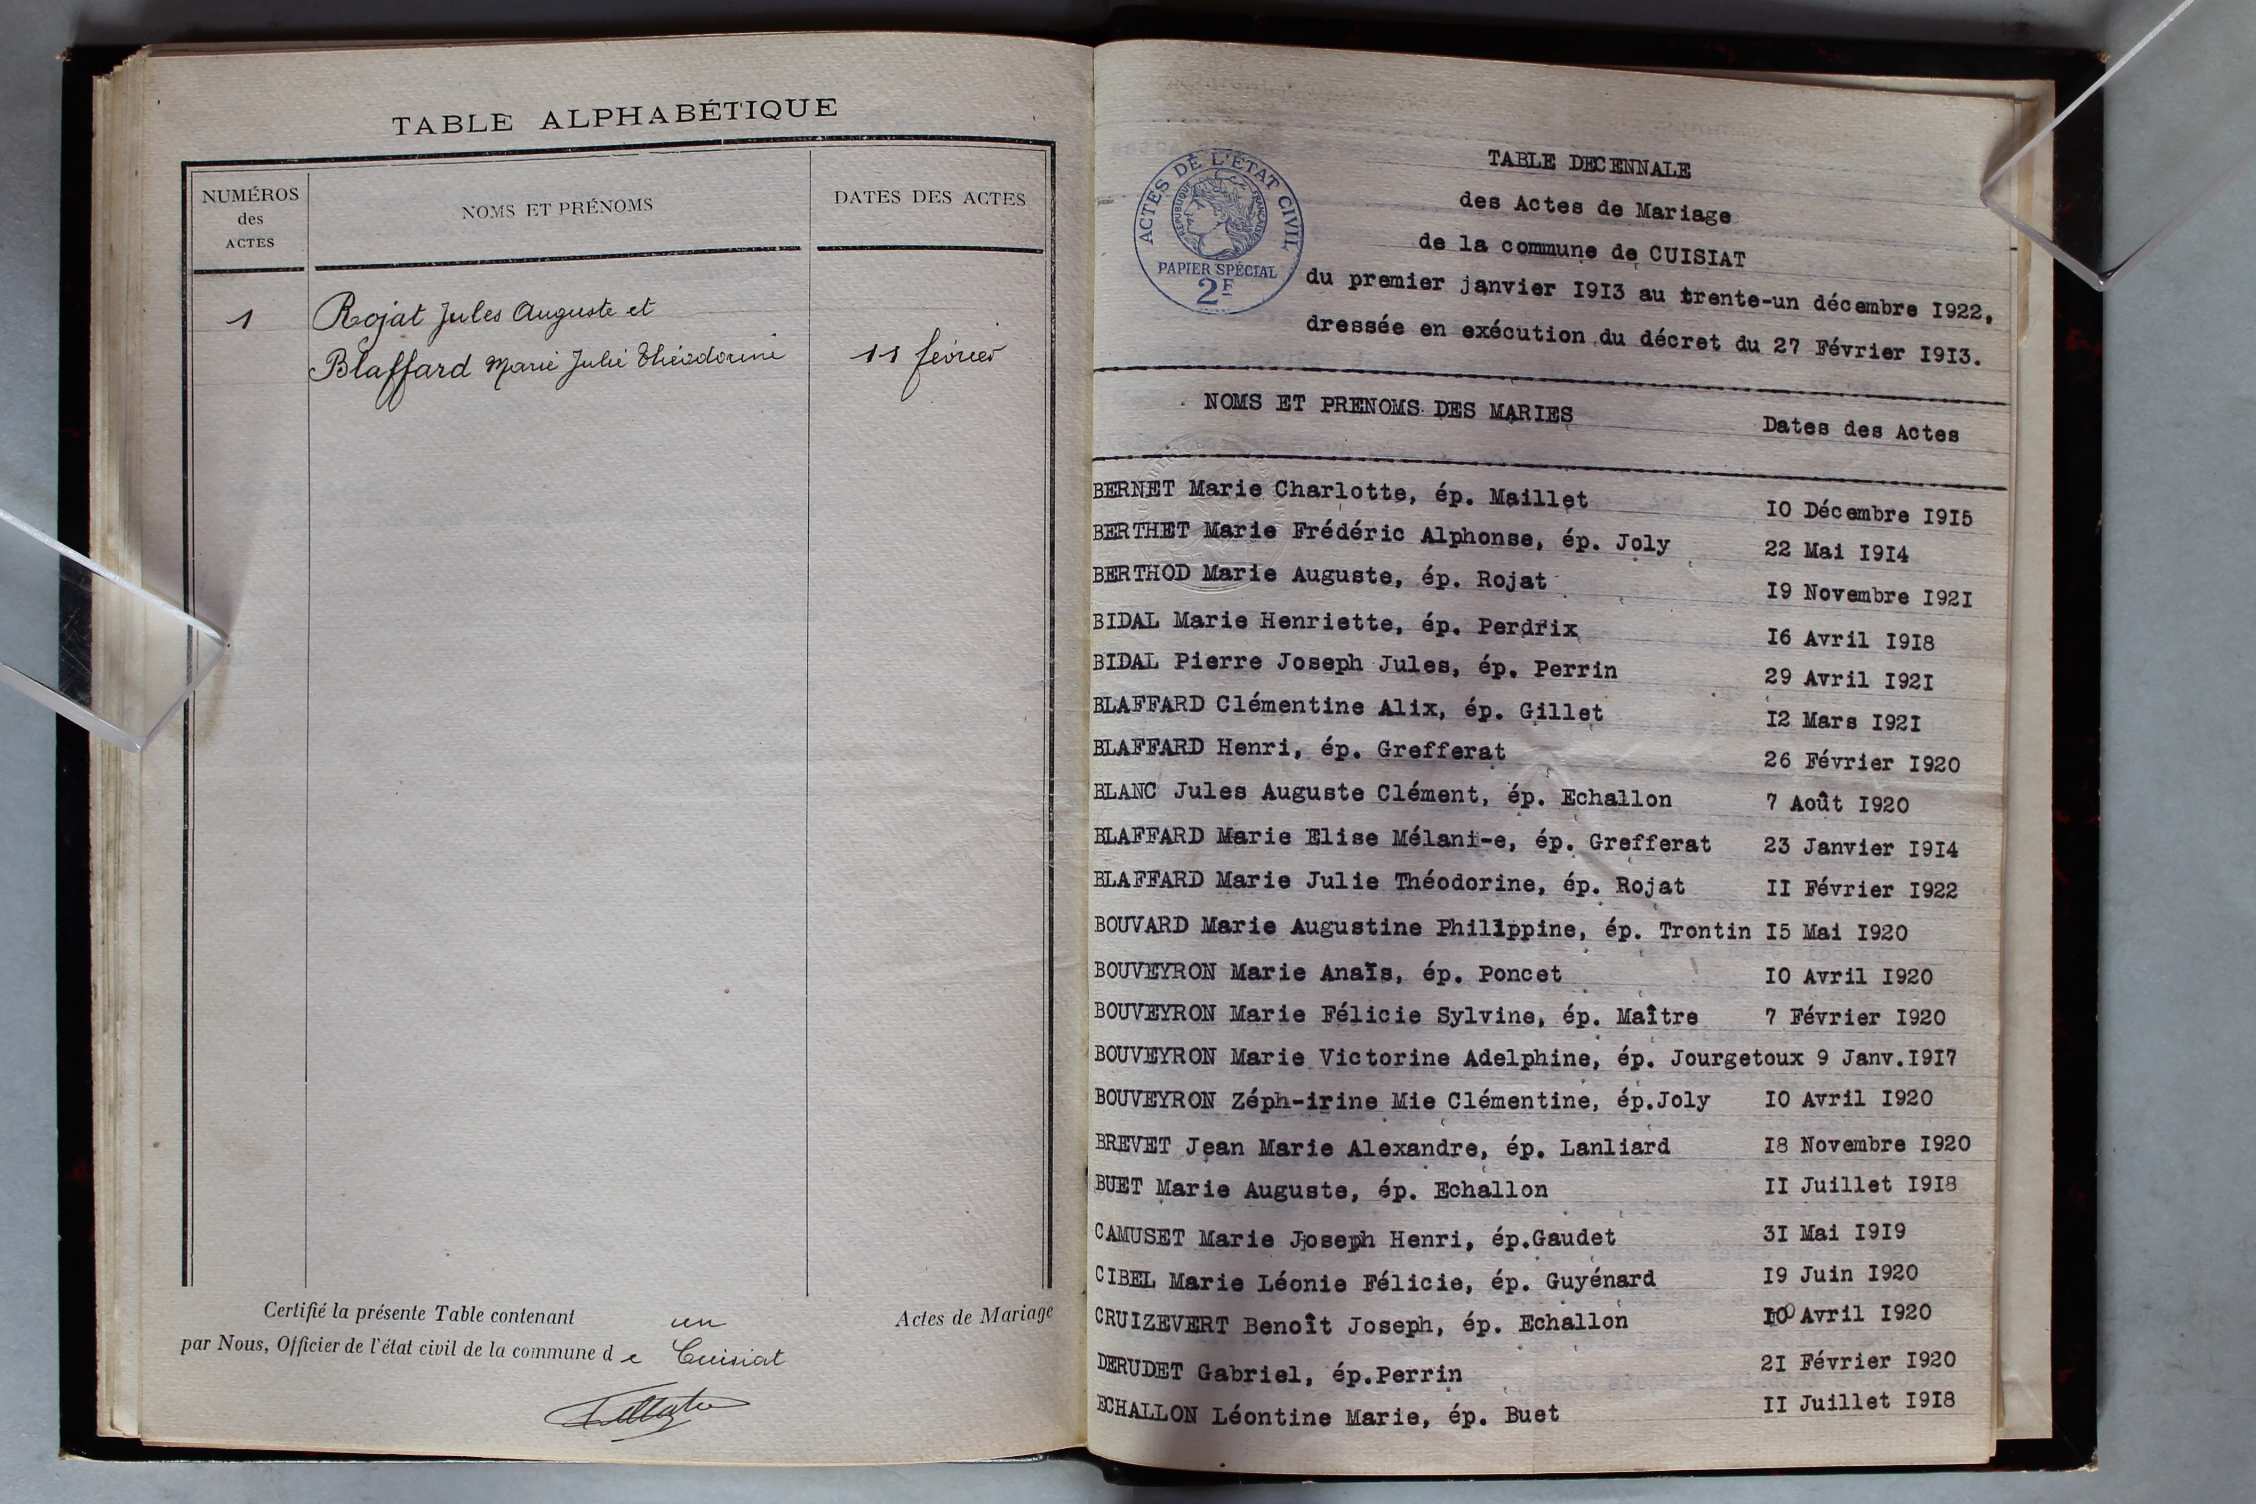 TABLE ALPHABÉTIQUE
NUMÉROS
des
ACTES
NOMS ET PRÉNOMS
DATES DES ACTES
1
Rojat Jules Auguste et
Blaffard Marie Julie Théodorine
11 février
Certifié la présente Table contenant un Actes de Mariage
par Nous, Officier de l'état civil de la commune de Cuisiat
ACTES DE L'ÉTAT CIVIL
RÉPUBLIQUE FRANÇAISE
PAPIER SPÉCIAL
2F
TABLE DECENNALE
des Actes de Mariage
de la commune de CUISIAT
du premier janvier I9I3 au trente-un décembre I922,
dressée en exécution du décret du 27 Février I9I3.
NOMS ET PRENOMS DES MARIES Dates des Actes
BERNET Marie Charlotte, ép. Maillet IO Décembre I9I5
BERTHET Marie Frédéric Alphonse, ép. Joly 22 Mai I9I4
BERTHOD Marie Auguste, ép. Rojat I9 Novembre I92I
BIDAL Marie Henriette, ép. Perdrix I6 Avril I9I8
BIDAL Pierre Joseph Jules, ép. Perrin 29 Avril I92I
BLAFFARD Clémentine Alix, ép. Gillet I2 Mars I92I
BLAFFARD Henri, ép. Grefferat 26 Février I920
BLANC Jules Auguste Clément, ép. Echallon 7 Août I920
BLAFFARD Marie Elise Mélani-e, ép. Grefferat 23 Janvier I9I4
BLAFFARD Marie Julie Théodorine, ép. Rojat II Février I922
BOUVARD Marie Augustine Philippine, ép. Trontin I5 Mai I920
BOUVEYRON Marie Anaïs, ép. Poncet IO Avril I920
BOUVEYRON Marie Félicie Sylvine, ép. Maître 7 Février I920
BOUVEYRON Marie Victorine Adelphine, ép. Jourgetoux 9 Janv.I9I7
BOUVEYRON Zéph-irine Mie Clémentine, ép.Joly IO Avril I920
BREVET Jean Marie Alexandre, ép. Lanliard I8 Novembre I920
BUET Marie Auguste, ép. Echallon II Juillet I9I8
CAMUSET Marie Joseph Henri, ép.Gaudet 3I Mai I9I9
CIBEL Marie Léonie Félicie, ép. Guyénard I9 Juin I920
CRUIZEVERT Benoît Joseph, ép. Echallon IO Avril I920
DERUDET Gabriel, ép.Perrin 2I Février I920
ECHALLON Léontine Marie, ép. Buet II Juillet I9I8